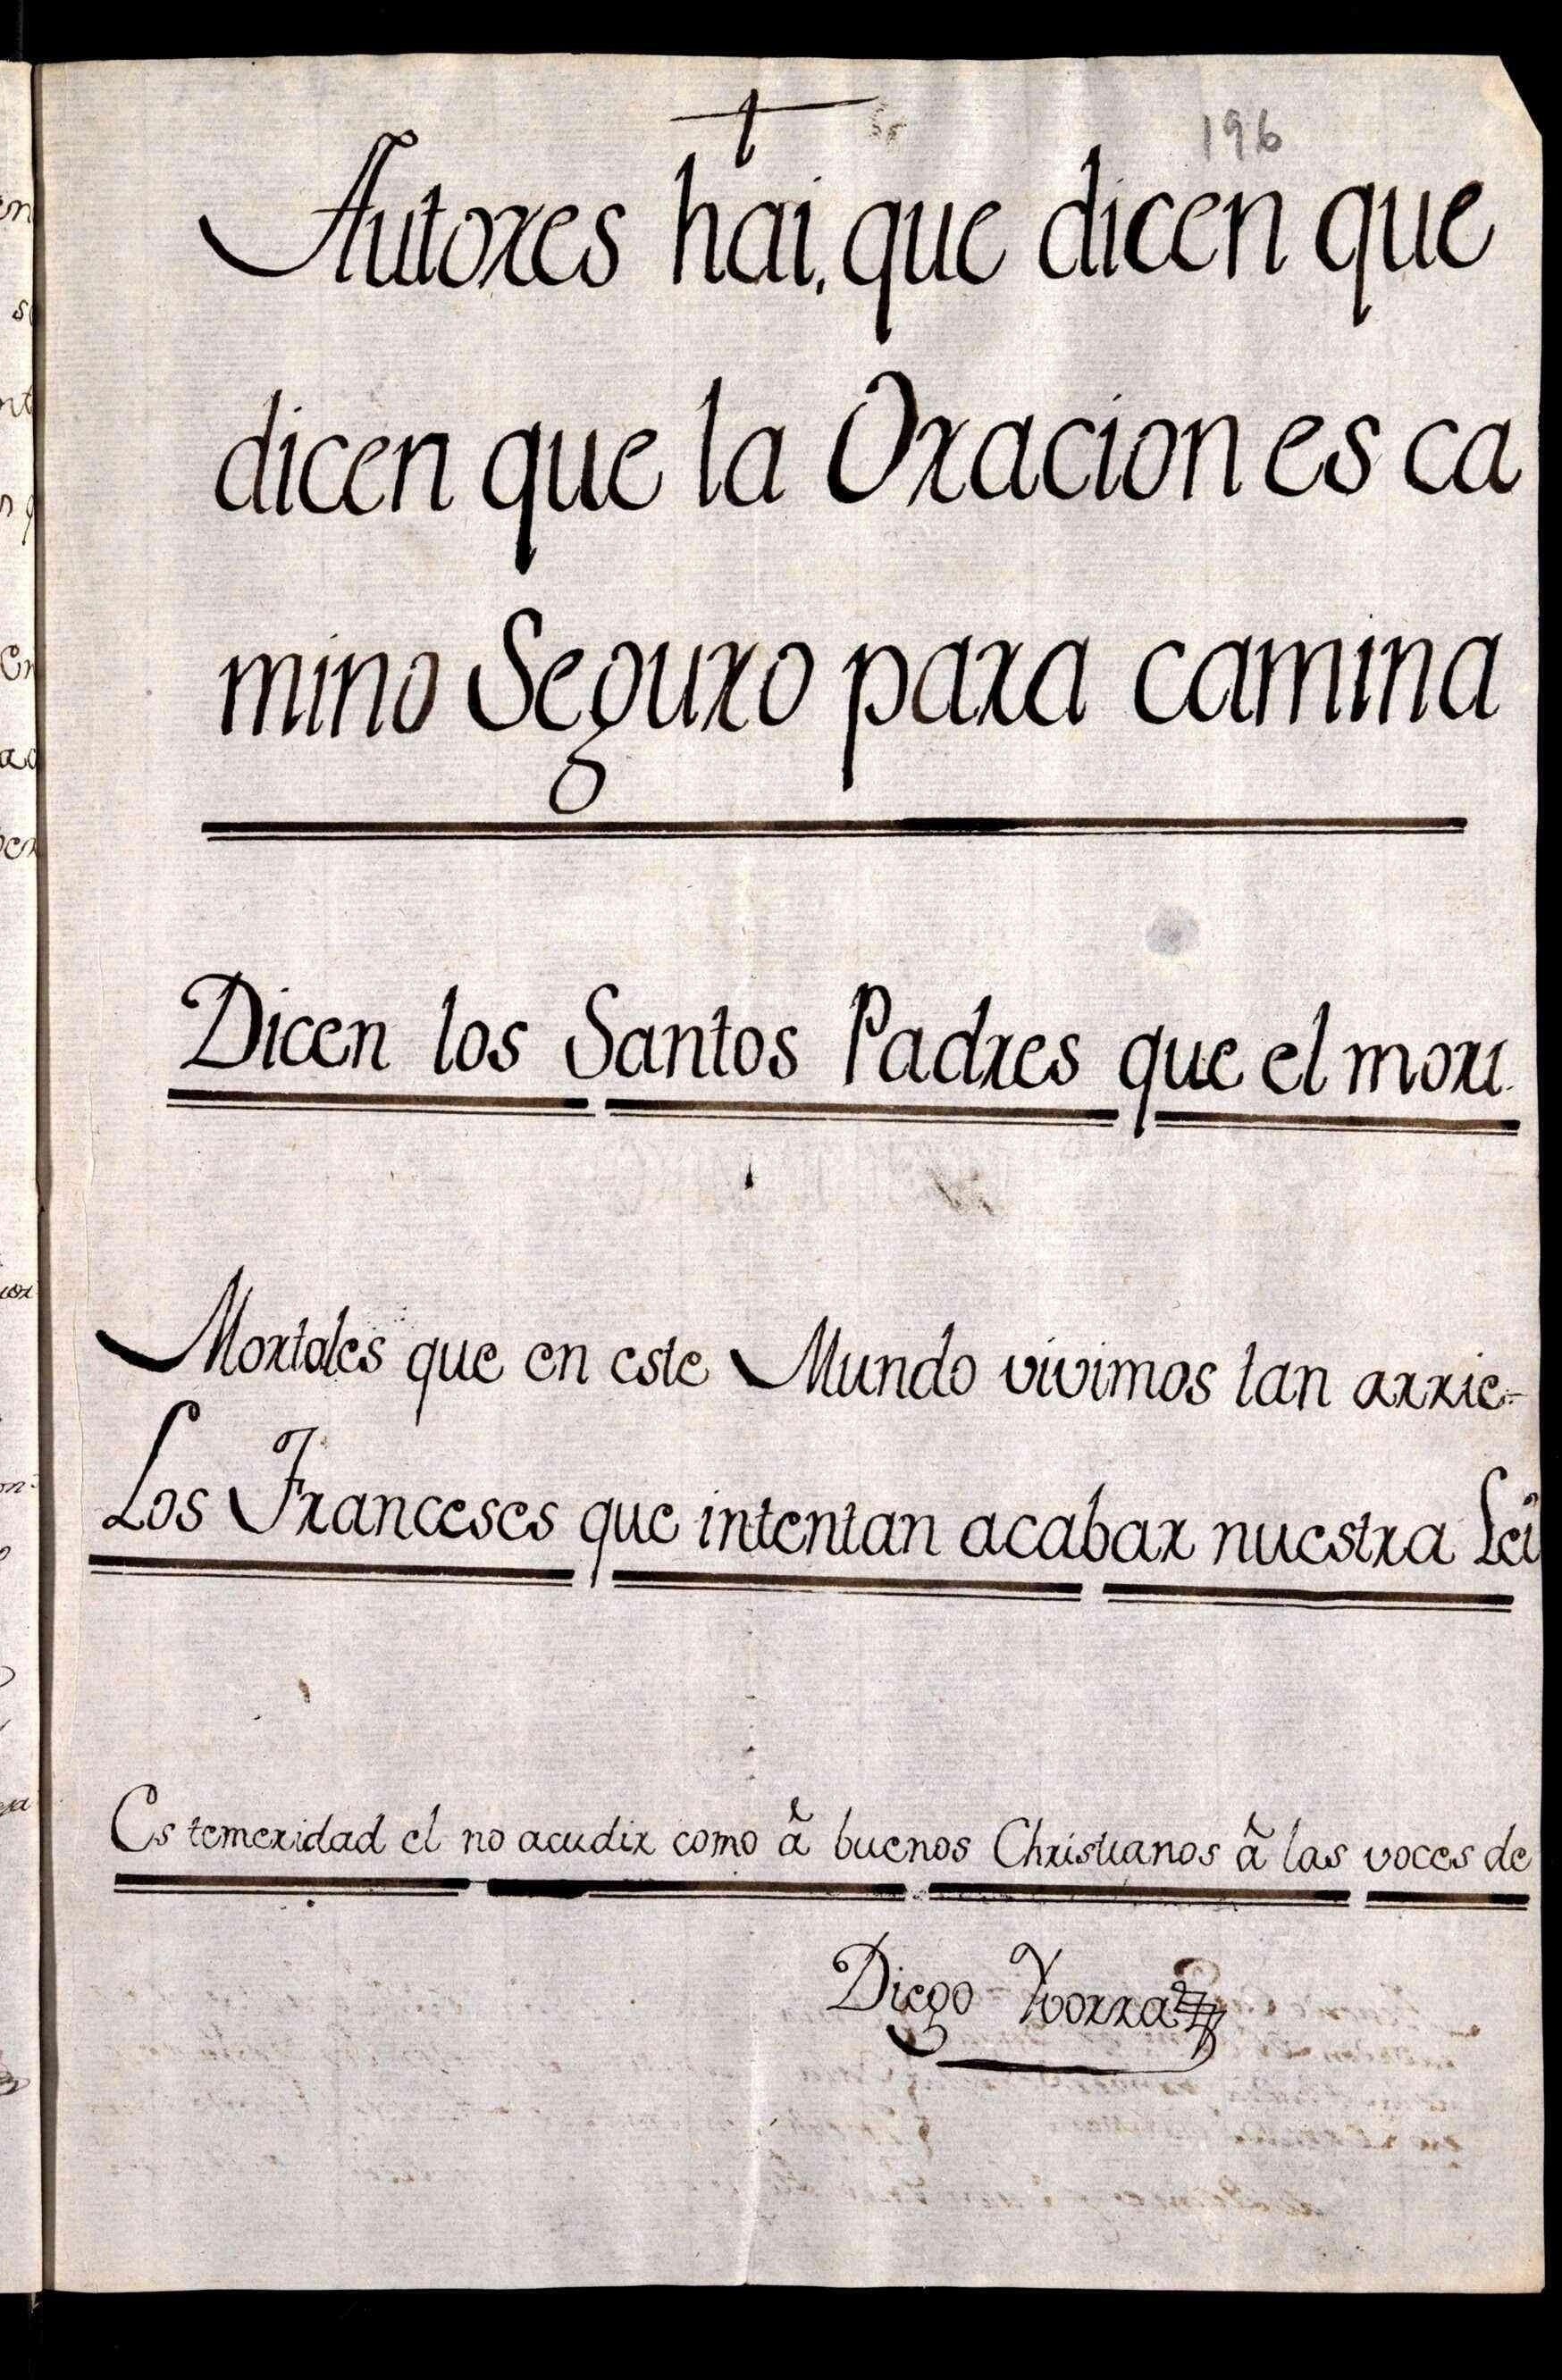 196
Autores hai, que dicen que
dicen que la Oracion es ca
mino Seguro para camina
Dicen los Santos Padres que el mori
Mortales que en este Mundo vivimos tan arrie-
Los Franceses que intentan acabar nuestra Lei
Es temeridad el no acudir como â buenos Christianos â las voces de
Diego Yvorra